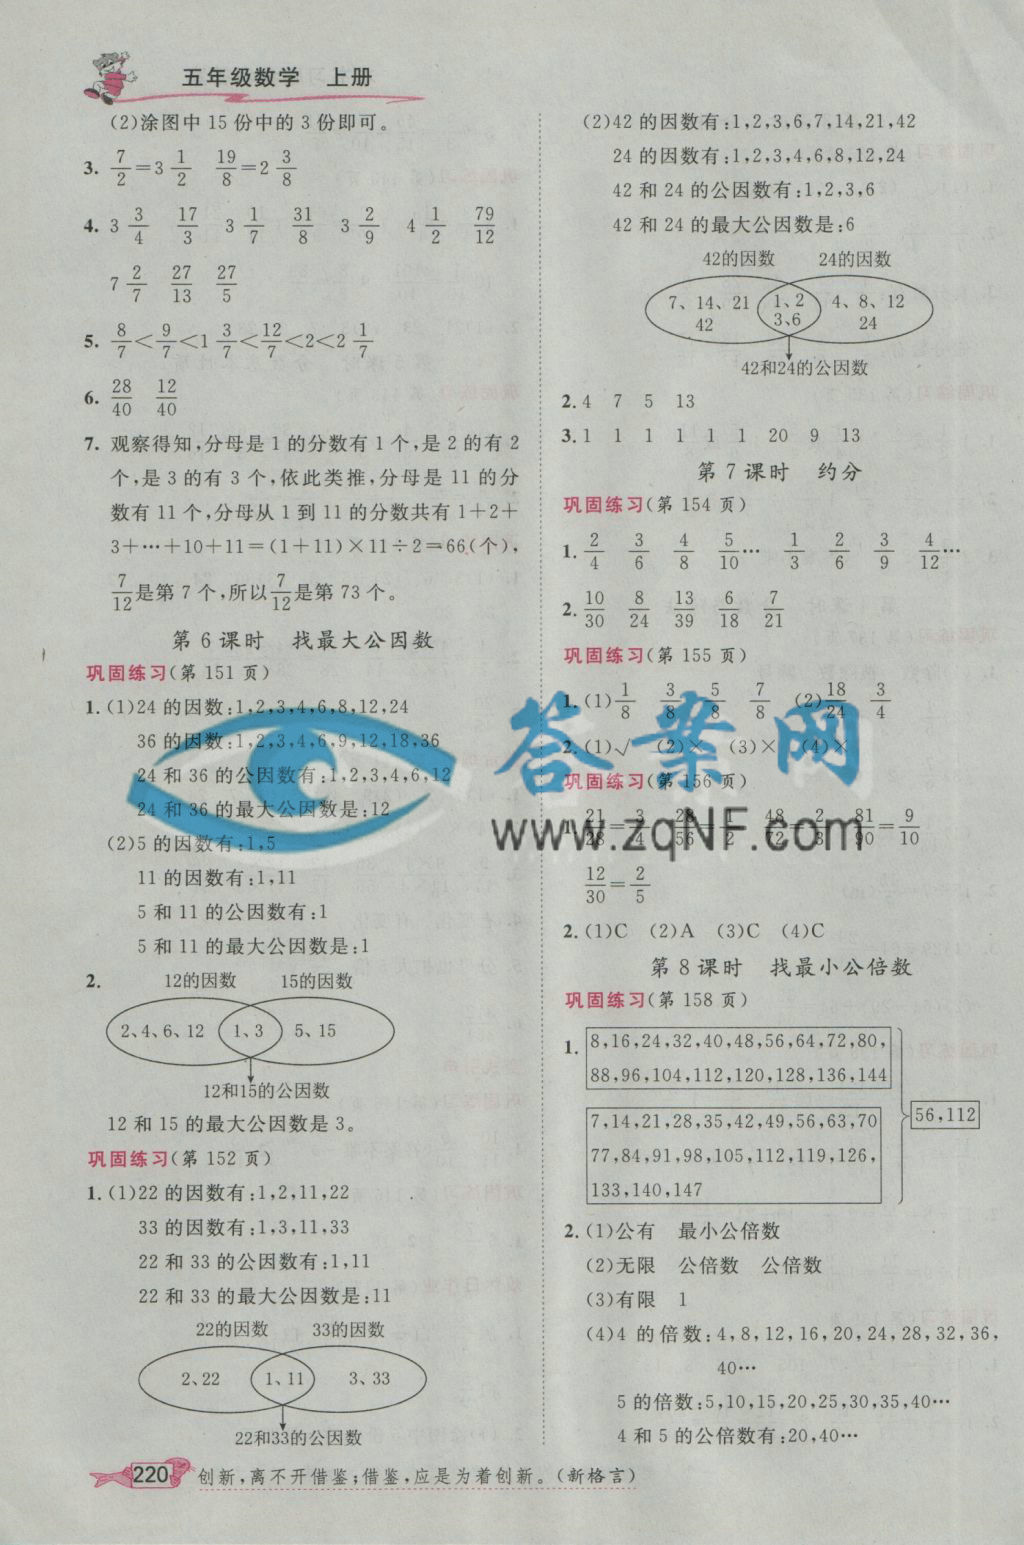 五年级数学 上册
(2)涂图中 15 份中的 3 份即可。
3. 7/2=3 1/2 19/8=2 3/8
4. 3 3/4 17/3 3 1/7 31/8 3 2/9 4 1/2 79/12
7 2/7 27/13 27/5
5. 8/7<9/7<1 3/7<12/7<2<2 1/7
6. 28/40 12/40
7. 观察得知,分母是 1 的分数有 1 个,是 2 的有 2
个,是 3 的有 3 个,依此类推,分母是 11 的分
数有 11 个,分母从 1 到 11 的分数共有 1+2+
3+…+10+11=(1+11)×11÷2=66(个),
7/12是第 7 个,所以7/12是第 73 个。
第 6 课时 找最大公因数
巩固练习(第 151 页)
1. (1)24 的因数:1,2,3,4,6,8,12,24
36 的因数:1,2,3,4,6,9,12,18,36
24 和 36 的公因数有:1,2,3,4,6,12
24 和 36 的最大公因数是:12
(2)5 的因数有:1,5
11 的因数有:1,11
5 和 11 的公因数有:1
5 和 11 的最大公因数是:1
2. 12的因数 15的因数
2、4、6、12 1、3 5、15
12和15的公因数
12 和 15 的最大公因数是 3。
巩固练习(第 152 页)
1. (1)22 的因数有:1,2,11,22
33 的因数有:1,3,11,33
22 和 33 的公因数有:1,11
22 和 33 的最大公因数是:11
22的因数 33的因数
2、22 1、11 3、33
22和33的公因数
(2)42 的因数有:1,2,3,6,7,14,21,42
24 的因数有:1,2,3,4,6,8,12,24
42 和 24 的公因数有:1,2,3,6
42 和 24 的最大公因数是:6
42的因数 24的因数
7、14、21 1、2 4、8、12
42 3、6 24
42和24的公因数
2. 4 7 5 13
3. 1 1 1 1 1 1 20 9 13
第 7 课时 约分
巩固练习(第 154 页)
1. 2/4 3/6 4/8 5/10… 1/3 2/6 3/9 4/12…
2. 10/30 8/24 13/39 6/18 7/21
巩固练习(第 155 页)
1. (1)1/8 3/8 5/8 7/8 (2)18/24 3/4
2. (1)√ (2)× (3)× (4)×
巩固练习(第 156 页)
1. 21/28=3/4 28/56=1/2 48/72=2/3 81/90=9/10
12/30=2/5
2. (1)C (2)A (3)C (4)C
第 8 课时 找最小公倍数
巩固练习(第 158 页)
1. 8,16,24,32,40,48,56,64,72,80,
88,96,104,112,120,128,136,144
56,112
7,14,21,28,35,42,49,56,63,70
77,84,91,98,105,112,119,126,
133,140,147
2. (1)公有 最小公倍数
(2)无限 公倍数 公倍数
(3)有限 1
(4)4 的倍数:4,8,12,16,20,24,28,32,36,
40…
5 的倍数:5,10,15,20,25,30,35,40…
4 和 5 的公倍数有:20,40…
220 创新,离不开借鉴;借鉴,应是为着创新。(新格言)
答案网
www.zqNF.com